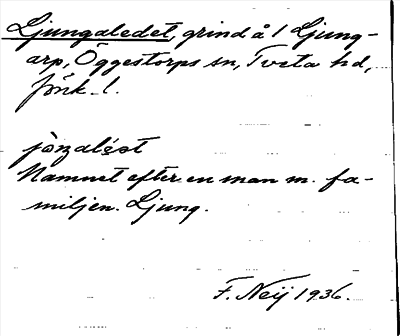 Ljungaledet, grind å 1 Ljung-
arp, Öggestorps sn, Tveta hd,
Jönk. l.
Namnet efter en man m. fa-
miljen. Ljung.
F. Neij 1936.